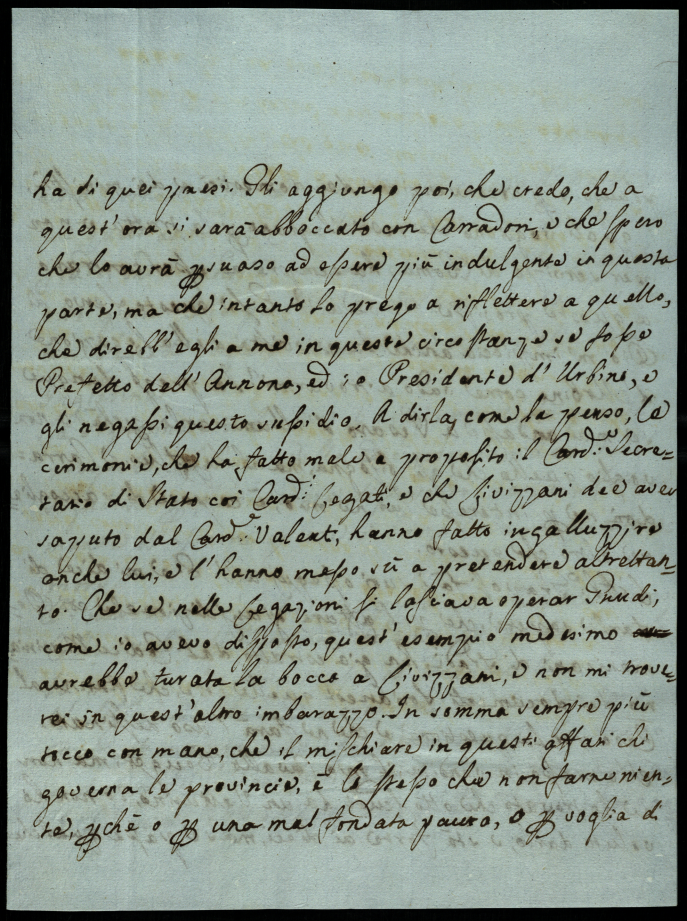 ha di quei paesi. Gli aggiungo poi, che credo, che a
quest'ora si sarà abboccato con Carradori, e che spero
che lo avrà psuaso ad essere più indulgente in questa
parte, ma che intanto lo prego a riflettere a quello,
che direbb'egli a me in queste circostanze se fosse
Prefetto dell'Annona, ed io Presidente d'Urbino, e
gli negassi questo sussidio. A dirla, come la penso, le
cerimonie, che ha fatto male a proposito il Card.e Secre-
tario di Stato coi Card.i Legati, e che Livizzani dee aver
saputo dal Card.e Valenti, hanno fatto ingalluzzire
anche lui, e l'hanno messo sù a pretendere altrettan-
to. Che se nelle Legazioni si lasciava operar Giudi,
come io avevo disposto, quest'esempio medesimo
avrebbe turata la bocca a Livizzani, e non mi trove-
rei in quest'altro imbarazzo. In somma sempre più
tocco con mano, che il mischiare in questi affari chi
governa le provincie, è lo stesso che non farne nien-
te, pchè o p una mal fondata paura, o p voglia di